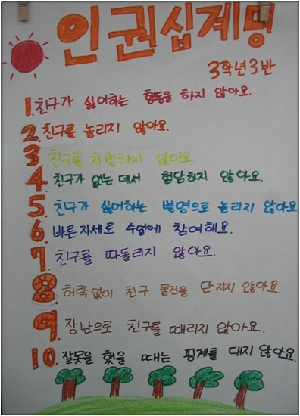 인권십계명
3학년3반
1. 친구가 싫어하는 행동을 하지 않아요.
2. 친구를 놀리지 않아요.
3 친구를 차별하지 않아요.
4 친구가 없는 데서 험담하지 않아요.
5. 친구가 싫어하는 별명으로 놀리지 않아요
6. 바른자세로 수업에 참여해요.
7. 친구를 따돌리지 않아요.
8 허락 없이 친구 물건을 만지지 않아요
9. 장난으로 친구를 때리지 않아요.
10. 잘못을 했을 때는 핑계를 대지 않아요